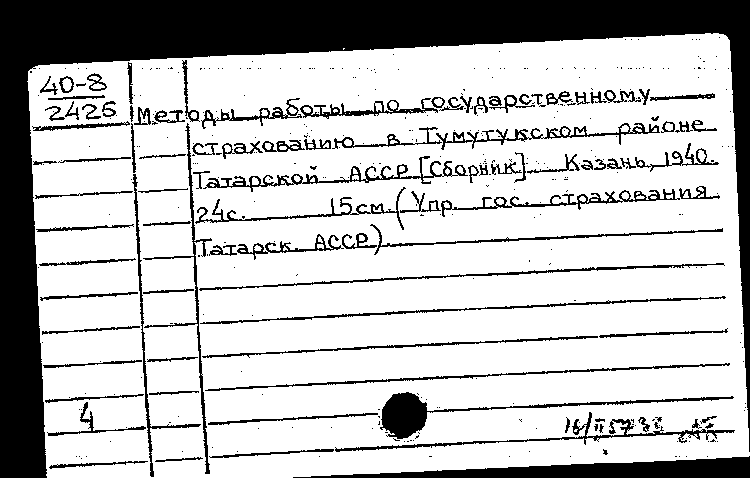 40-8
2426
Методы работы по государственному
страхованию в Тумутукском районе
Татарской АССР [Сборник]. Казань, 1940.
24с. 15см. (Упр. гос. страхования
Татарск. АССР)
4